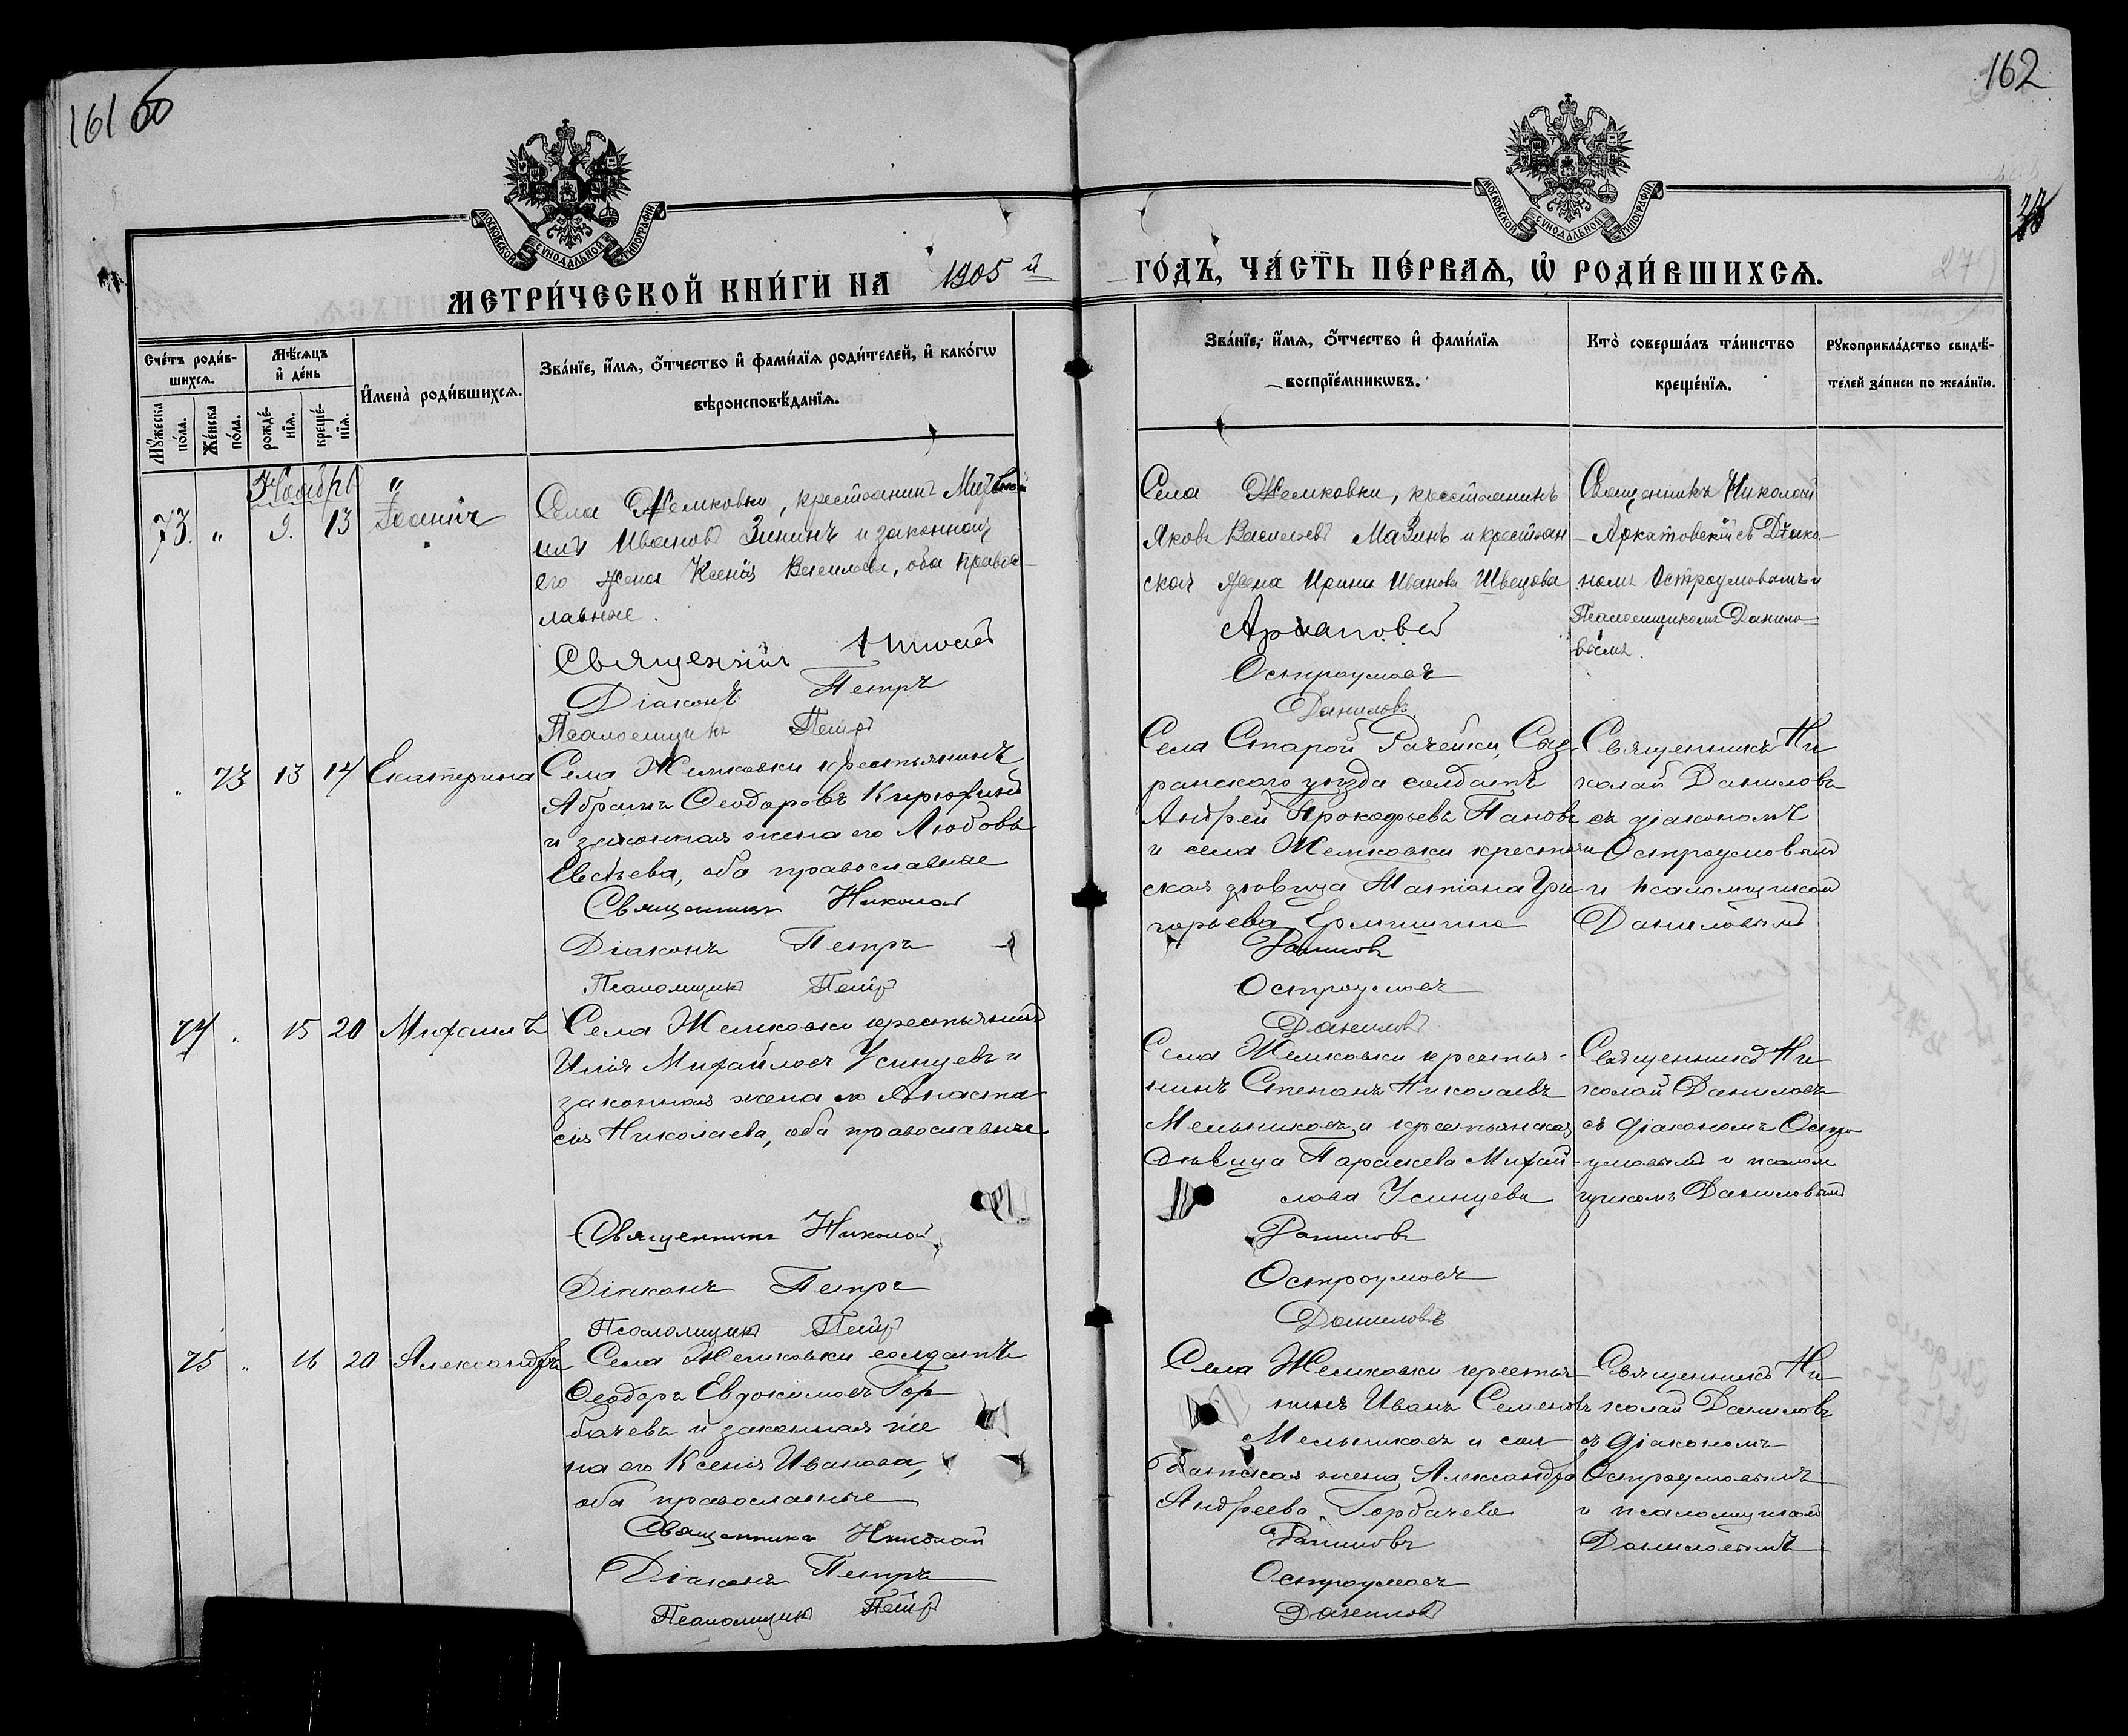 161 об
162
МОСКОВСКОЙ СѴНОДАЛЬНОЙ ТИПОГРАФІИ
МОСКОВСКОЙ СѴНОДАЛЬНОЙ ТИПОГРАФІИ
27
МЕТРИ́ЧЕСКОЙ КНИ́ГИ НА 1905 й
ГО́ДЪ, ЧА́СТЬ ПЕ́РВАѦ, Ѡ҆ РОДИ́ВШИХСѦ.
Сче́тъ роди́в-
шихсѧ.
Мꙋжеска по́ла.
Же́нска по́ла.
Мѣ́сѧцъ
и҆ де́нь
рожде́-
нїѧ.
креще́-
нїѧ.
И҆мена̀ роди́вшихсѧ.
Зва́нїе, и҆́мѧ, ѻ҆́тчество и҆ фами́лїѧ роди́телей, и҆ како́гѡ
вѣроисповѣ́данїѧ.
Зва́нїе, и҆́мѧ, ѻ҆́тчество и҆ фами́лїѧ
воспрїе́мникѡвъ.
Кто̀ соверша́лъ та́инство
креще́нїѧ.
Рꙋкоприкла́дство свидѣ́-
телей за́писи по жела́нїю.
Ноябрь
73. " 9. 13 Іоаннъ
Села Жемковки, крестьянинъ
Ивановъ Зининъ и законная
его жена Ксенія Васильева, оба правос-
лавные.
Священникъ Николай
Діаконъ Петръ
Псаломщикъ Петръ
Села Жемковки, крестьянинъ
Яковъ Васильевъ Мазинъ и крестьян
ская жена Ирина Иванова Швецова
Остроумовъ
Даниловъ
Священникъ Николай
Архатовскій съ Діако-
номъ Остроумовымъ и
Псаломщикомъ Данило-
вымъ.
" 73 13 14 Екатерина
Села Жемковки крестьянинъ
Абрамъ Ѳеодоровъ Кирюхинъ
и законная жена его Любовь
Евсѣева, оба православные
Священникъ Николай
Діаконъ Петръ
Псаломщикъ Петръ
Села Старой Рачейки, Сыз-
ранскаго уѣзда солдатъ
Андрей Прокофьевъ Пановъ
и села Жемковки крестьян
ская дѣвица Татіана Гри
горьева Ермишина
Даниловъ
Остроумовъ
Даниловъ
Священникъ Ни
колай Даниловъ
съ діакономъ
Остроумовымъ
и псаломщикомъ
Даниловымъ
74 " 15 20 Михаилъ
Села Жемковки крестьянинъ
Илія Михайловъ Усинцевъ и
законная жена его Анаста
сія Николаева, оба православные
Священникъ Николай
Діаконъ Петръ
Псаломщикъ Петръ
Села Жемковки крестья-
нинъ Степанъ Николаевъ
Мельниковъ и крестьянская
дѣвица Параскева Михай-
лова Усинцева
Даниловъ
Остроумовъ
Даниловъ
Священникъ Ни
колай Даниловъ
съ діакономъ Остро
умовымъ и псалом
щикомъ Даниловымъ
75 " 16 20 Александръ
Села Жемковки солдатъ
Ѳеодоръ Евдокимовъ Гор
бачевъ и законная же
на его Ксенія Иванова,
оба православные
Священникъ Николай
Діаконъ Петръ
Псаломщикъ Петръ
Села Жемковки крестья
нинъ Иванъ Семеновъ
Мельниковъ и сол
датская жена Александра
Андреева Горбачева
Даниловъ
Остроумовъ
Даниловъ
Священникъ Ни
колай Даниловъ
съ діакономъ
Остроумовымъ
и псаломщикомъ
Даниловымъ